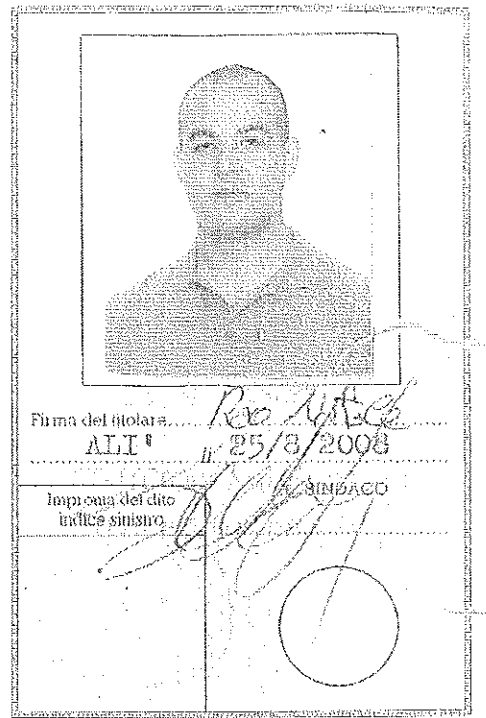 Firma del titolare
ALI' lì 25/8/2008
SINDACO
Impronta del dito
indice sinistro